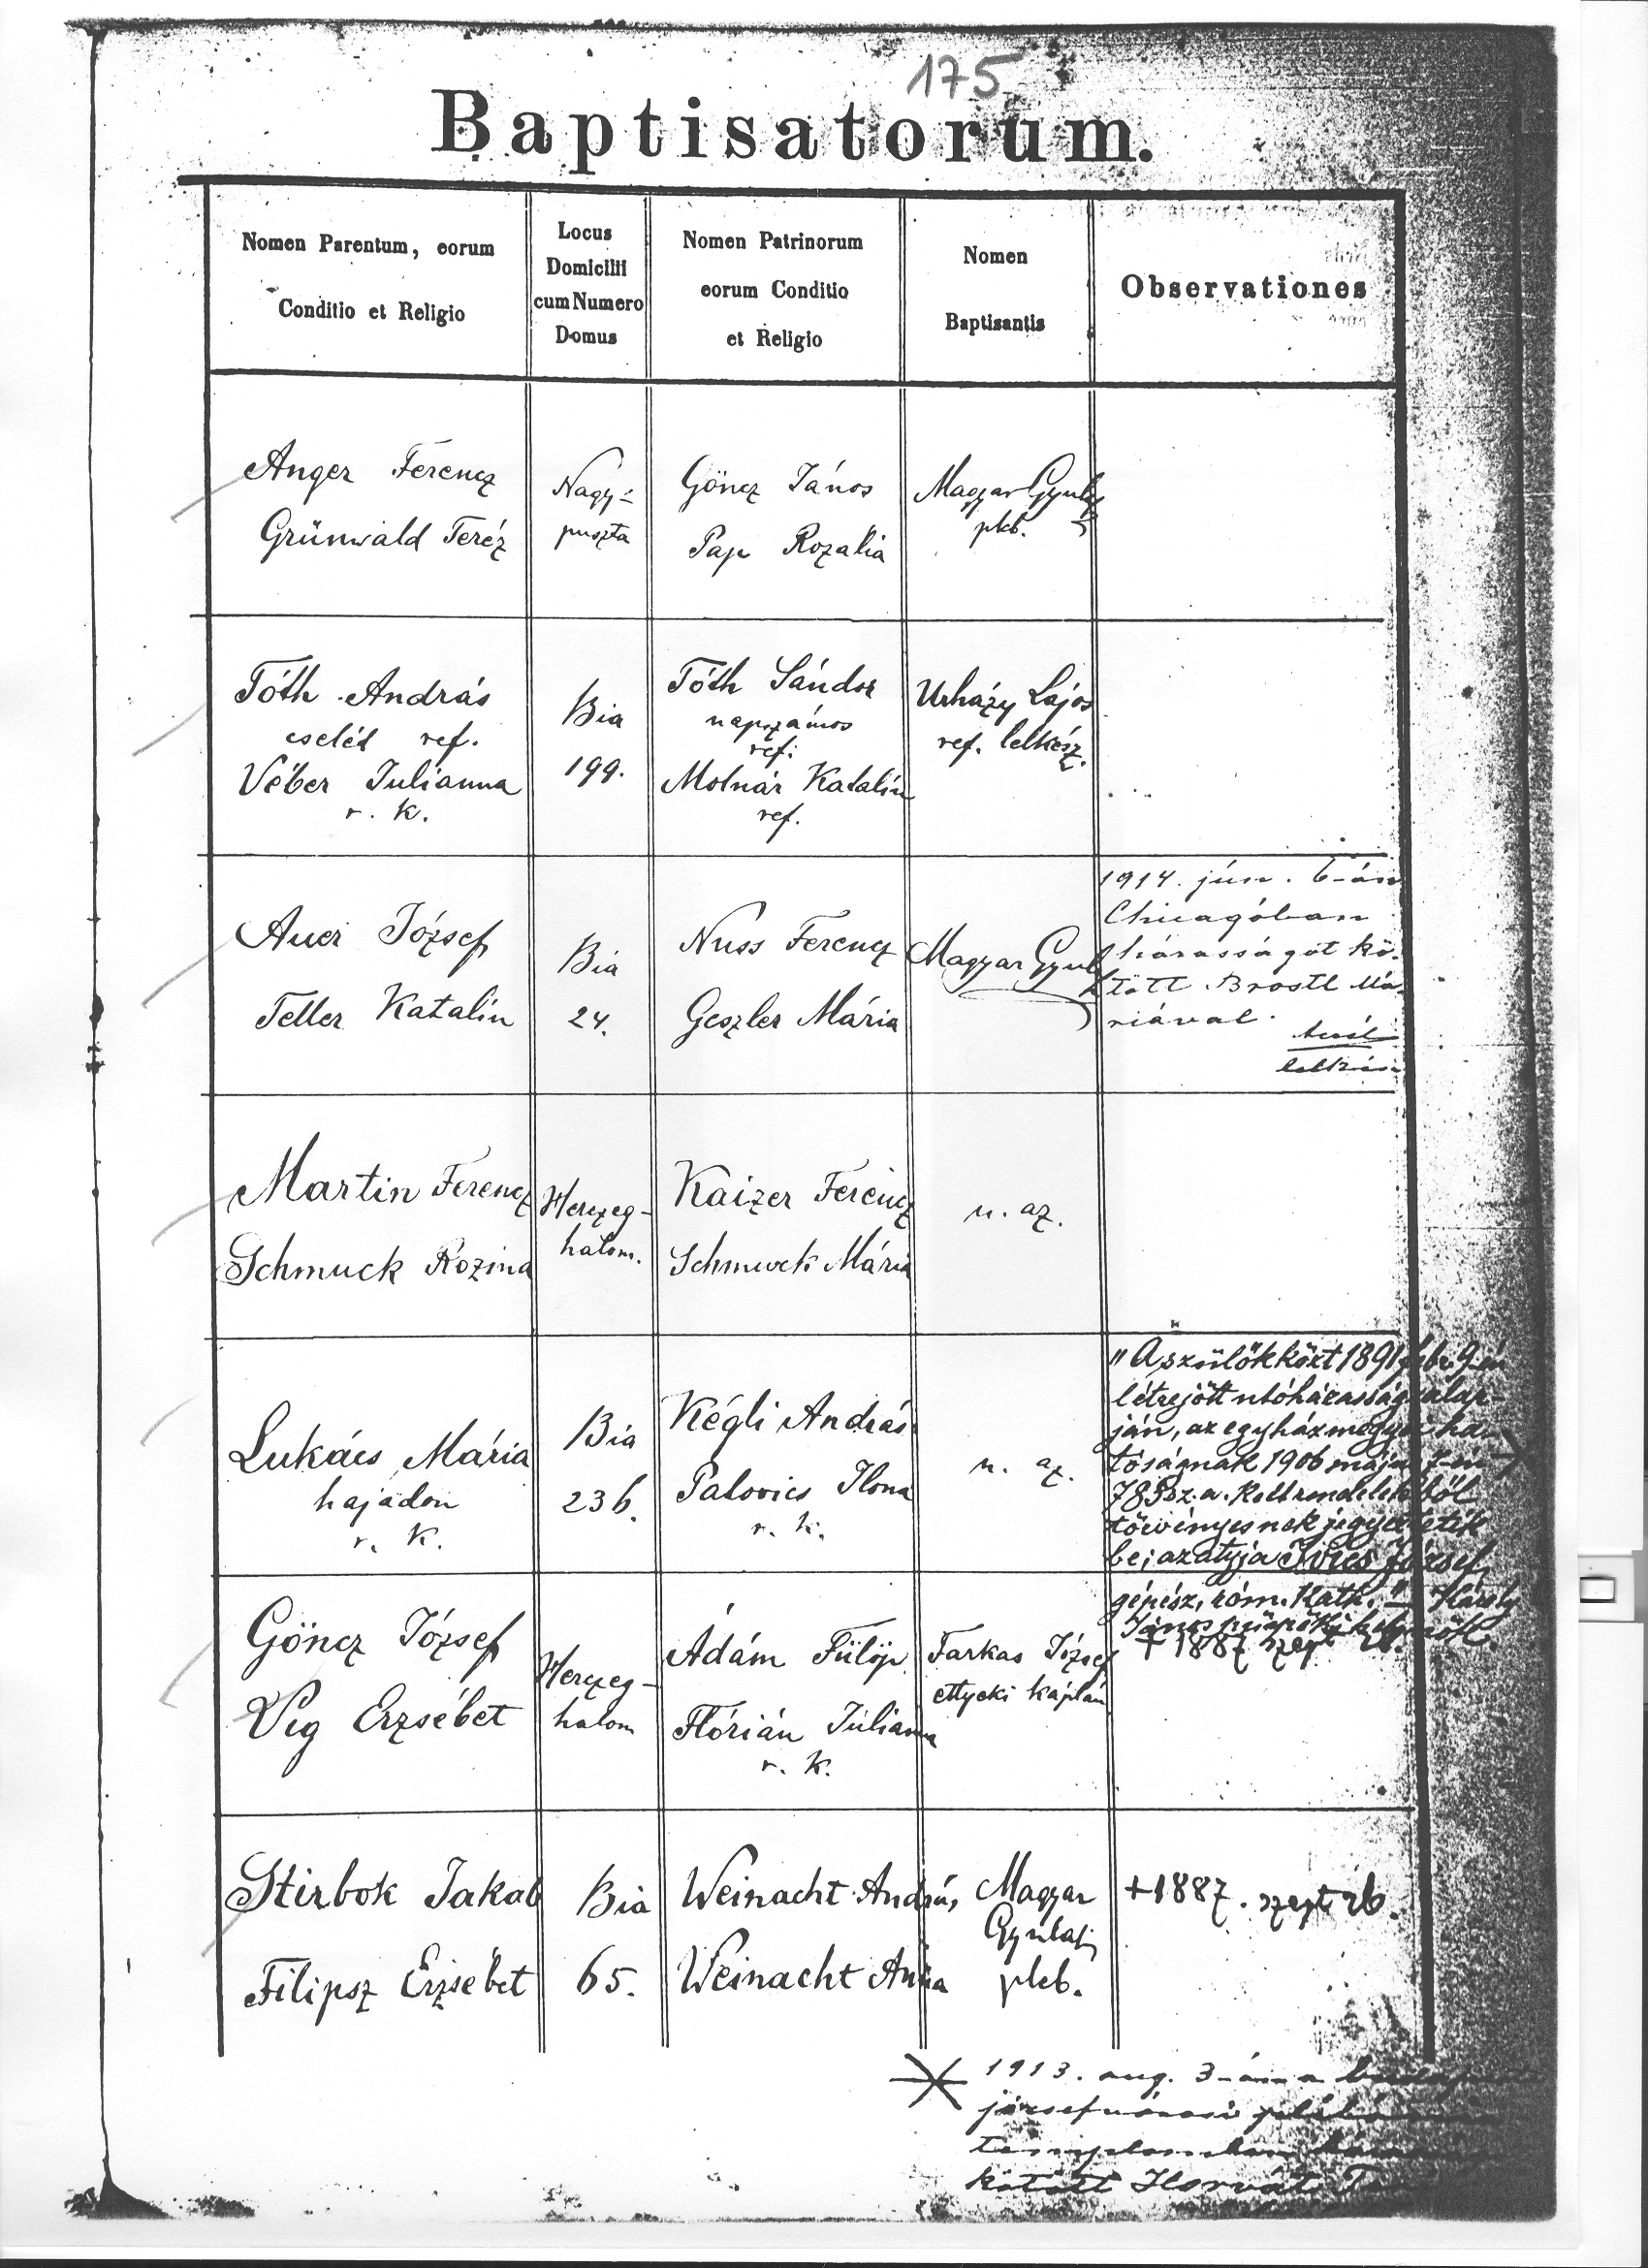 175
Baptisatorum.
Nomen Parentum, eorum
Conditio et Religio
Locus
Domicilii
cum Numero
Domus
Nomen Patrinorum
eorum Conditio
et Religio
Nomen
Baptisantis
Observationes
Anger Ferencz
Grünwald Teréz
Nagy-
puszta
Göncz János
Pap Rozalia
Magyar Gyula
plb.
Tóth András
cseléd ref.
Véber Julianna
r. k.
Bia
199.
Tóth Sándor
napszámos
ref.
Molnár Katalin
ref.
Urházy Lajos
ref. lelkész.
Auer József
Teller Katalin
Bia
24.
Nuss Ferencz
Geszler Mária
Magyar Gyula
1914. jún. 6-án
Chicagóban
házasságot kö-
tött Brostl Má-
riával.
lelkész
Martin Ferencz
Schmuck Rozina
Herczeg-
halom.
Kaizer Ferencz
Schmuck Mária
u. az.
Lukács Mária
hajadon
r. k.
Bia
236.
Kégli András
Palovics Ilona
r. k.
u. az.
"A szülők közt 1891 febr. 9-én
létrejött utóházasság alap-
ján, az egyházmegyei ha-
tóságnak 1906 május 7-én
789 sz. a. kelt rendeletéből
törvényesnek jegyeztetik
be; az atyja Ivics József
gépész, róm. kath." Károly
János püspöki helynök.
Göncz József
Vig Erzsébet
Herczeg-
halom
Ádám Fülöp
Flórián Julianna
r. k.
Farkas József
etyeki káplán
+ 1887 szept
Stirbok Jakab
Filipsz Erzsébet
Bia
65.
Weinacht András,
Weinacht Anna
Magyar
Gyula
pleb.
+1887. szept 26.
1913. aug. 3-án a budapesti
józsefvárosi plébánia
templomban
kötött Horvát